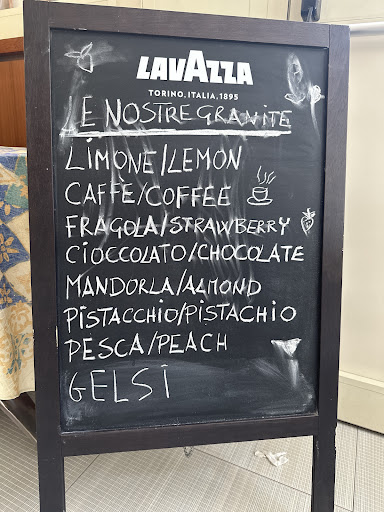 LAVAZZA
TORINO, ITALIA, 1895
LE NOSTRE GRANITE
LIMONE/LEMON
CAFFÈ/COFFEE
FRAGOLA/STRAWBERRY
CIOCCOLATO/CHOCOLATE
MANDORLA/ALMOND
PISTACCHIO/PISTACHIO
PESCA/PEACH
GELSI